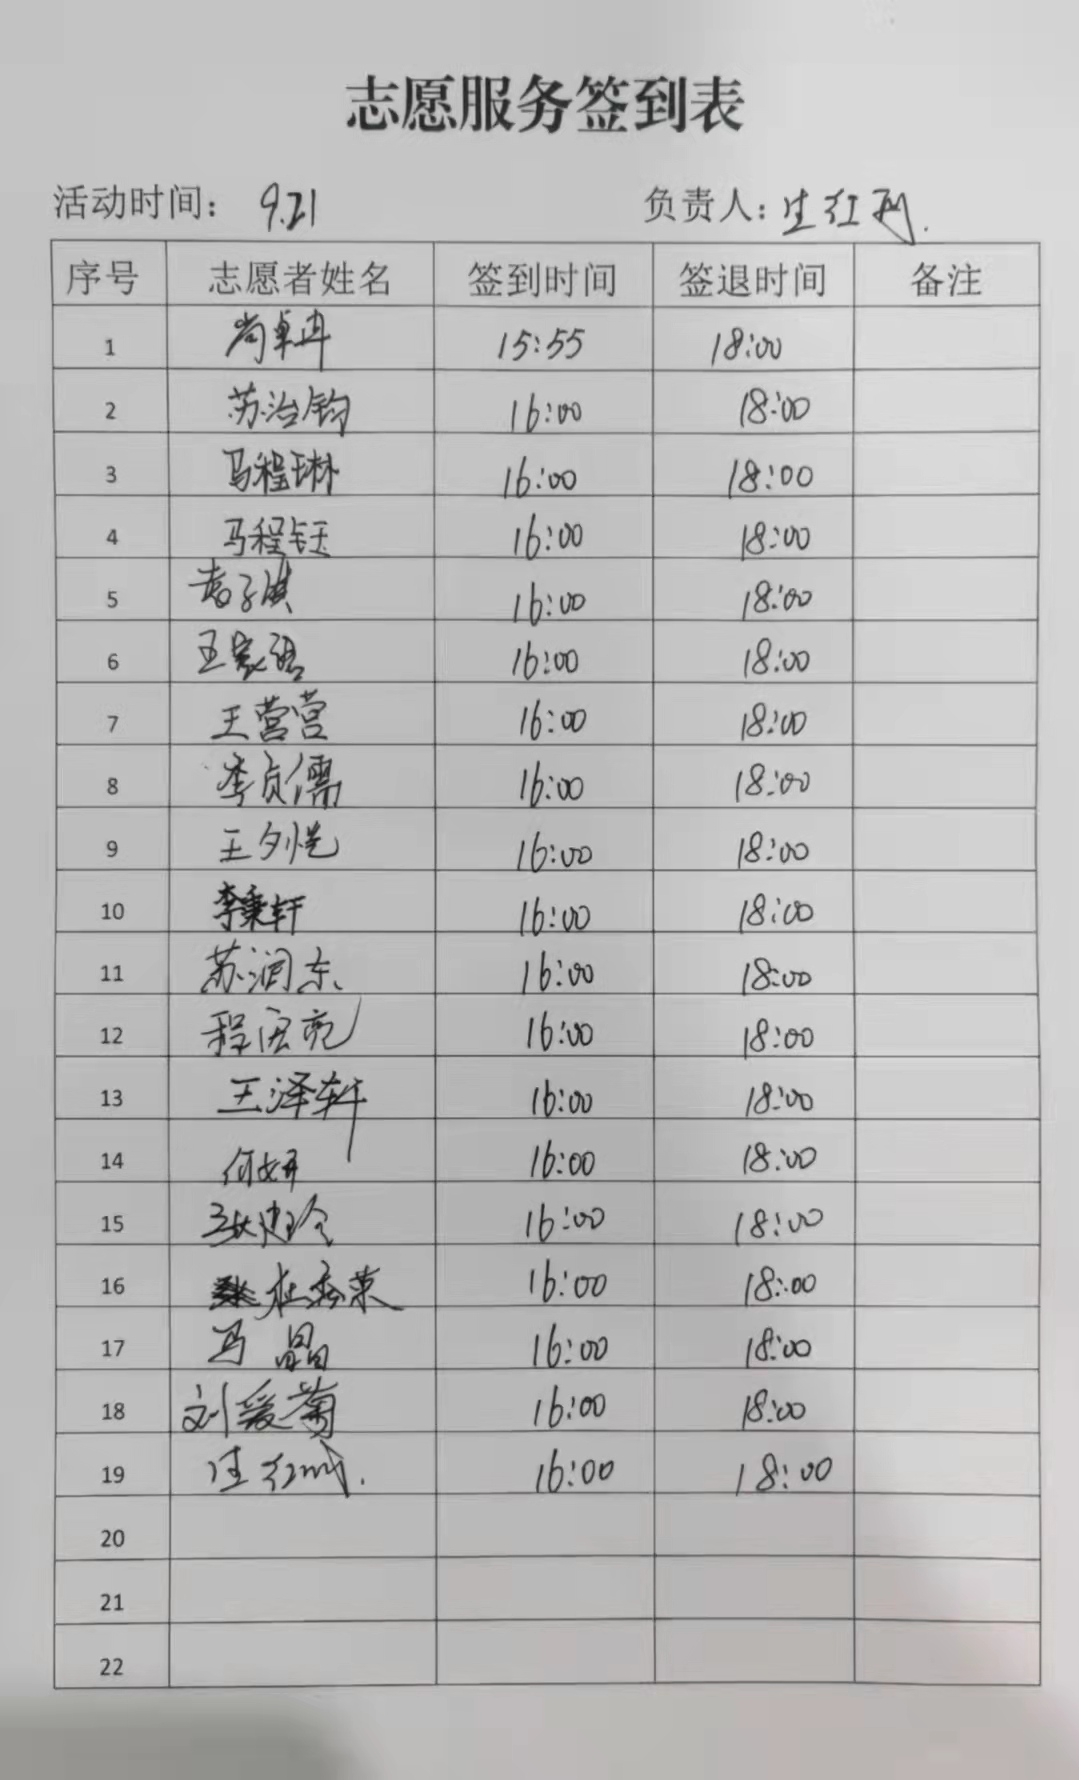 志愿服务签到表
活动时间： 9.21 负责人：
序号 志愿者姓名 签到时间 签退时间 备注
1 尚卓冉 15:55 18:00
2 苏治钧 16:00 18:00
3 马程琳 16:00 18:00
4 马程钰 16:00 18:00
5 16:00 18:00
6 王家 16:00 18:00
7 王营营 16:00 18:00
8 李贞儒 16:00 18:00
9 王夕恺 16:00 18:00
10 李秉轩 16:00 18:00
11 苏润东 16:00 18:00
12 程 16:00 18:00
13 王泽轩 16:00 18:00
14 何妍 16:00 18:00
15 16:00 18:00
16 杜秀荣 16:00 18:00
17 马晶 16:00 18:00
18 刘爱菊 16:00 18:00
19 16:00 18:00
20
21
22